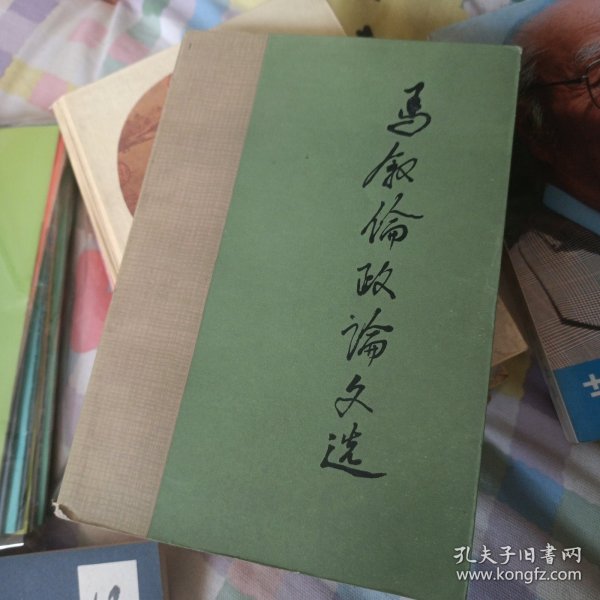 马叙倫政論文选
孔夫子旧書网
www.kongfz.com